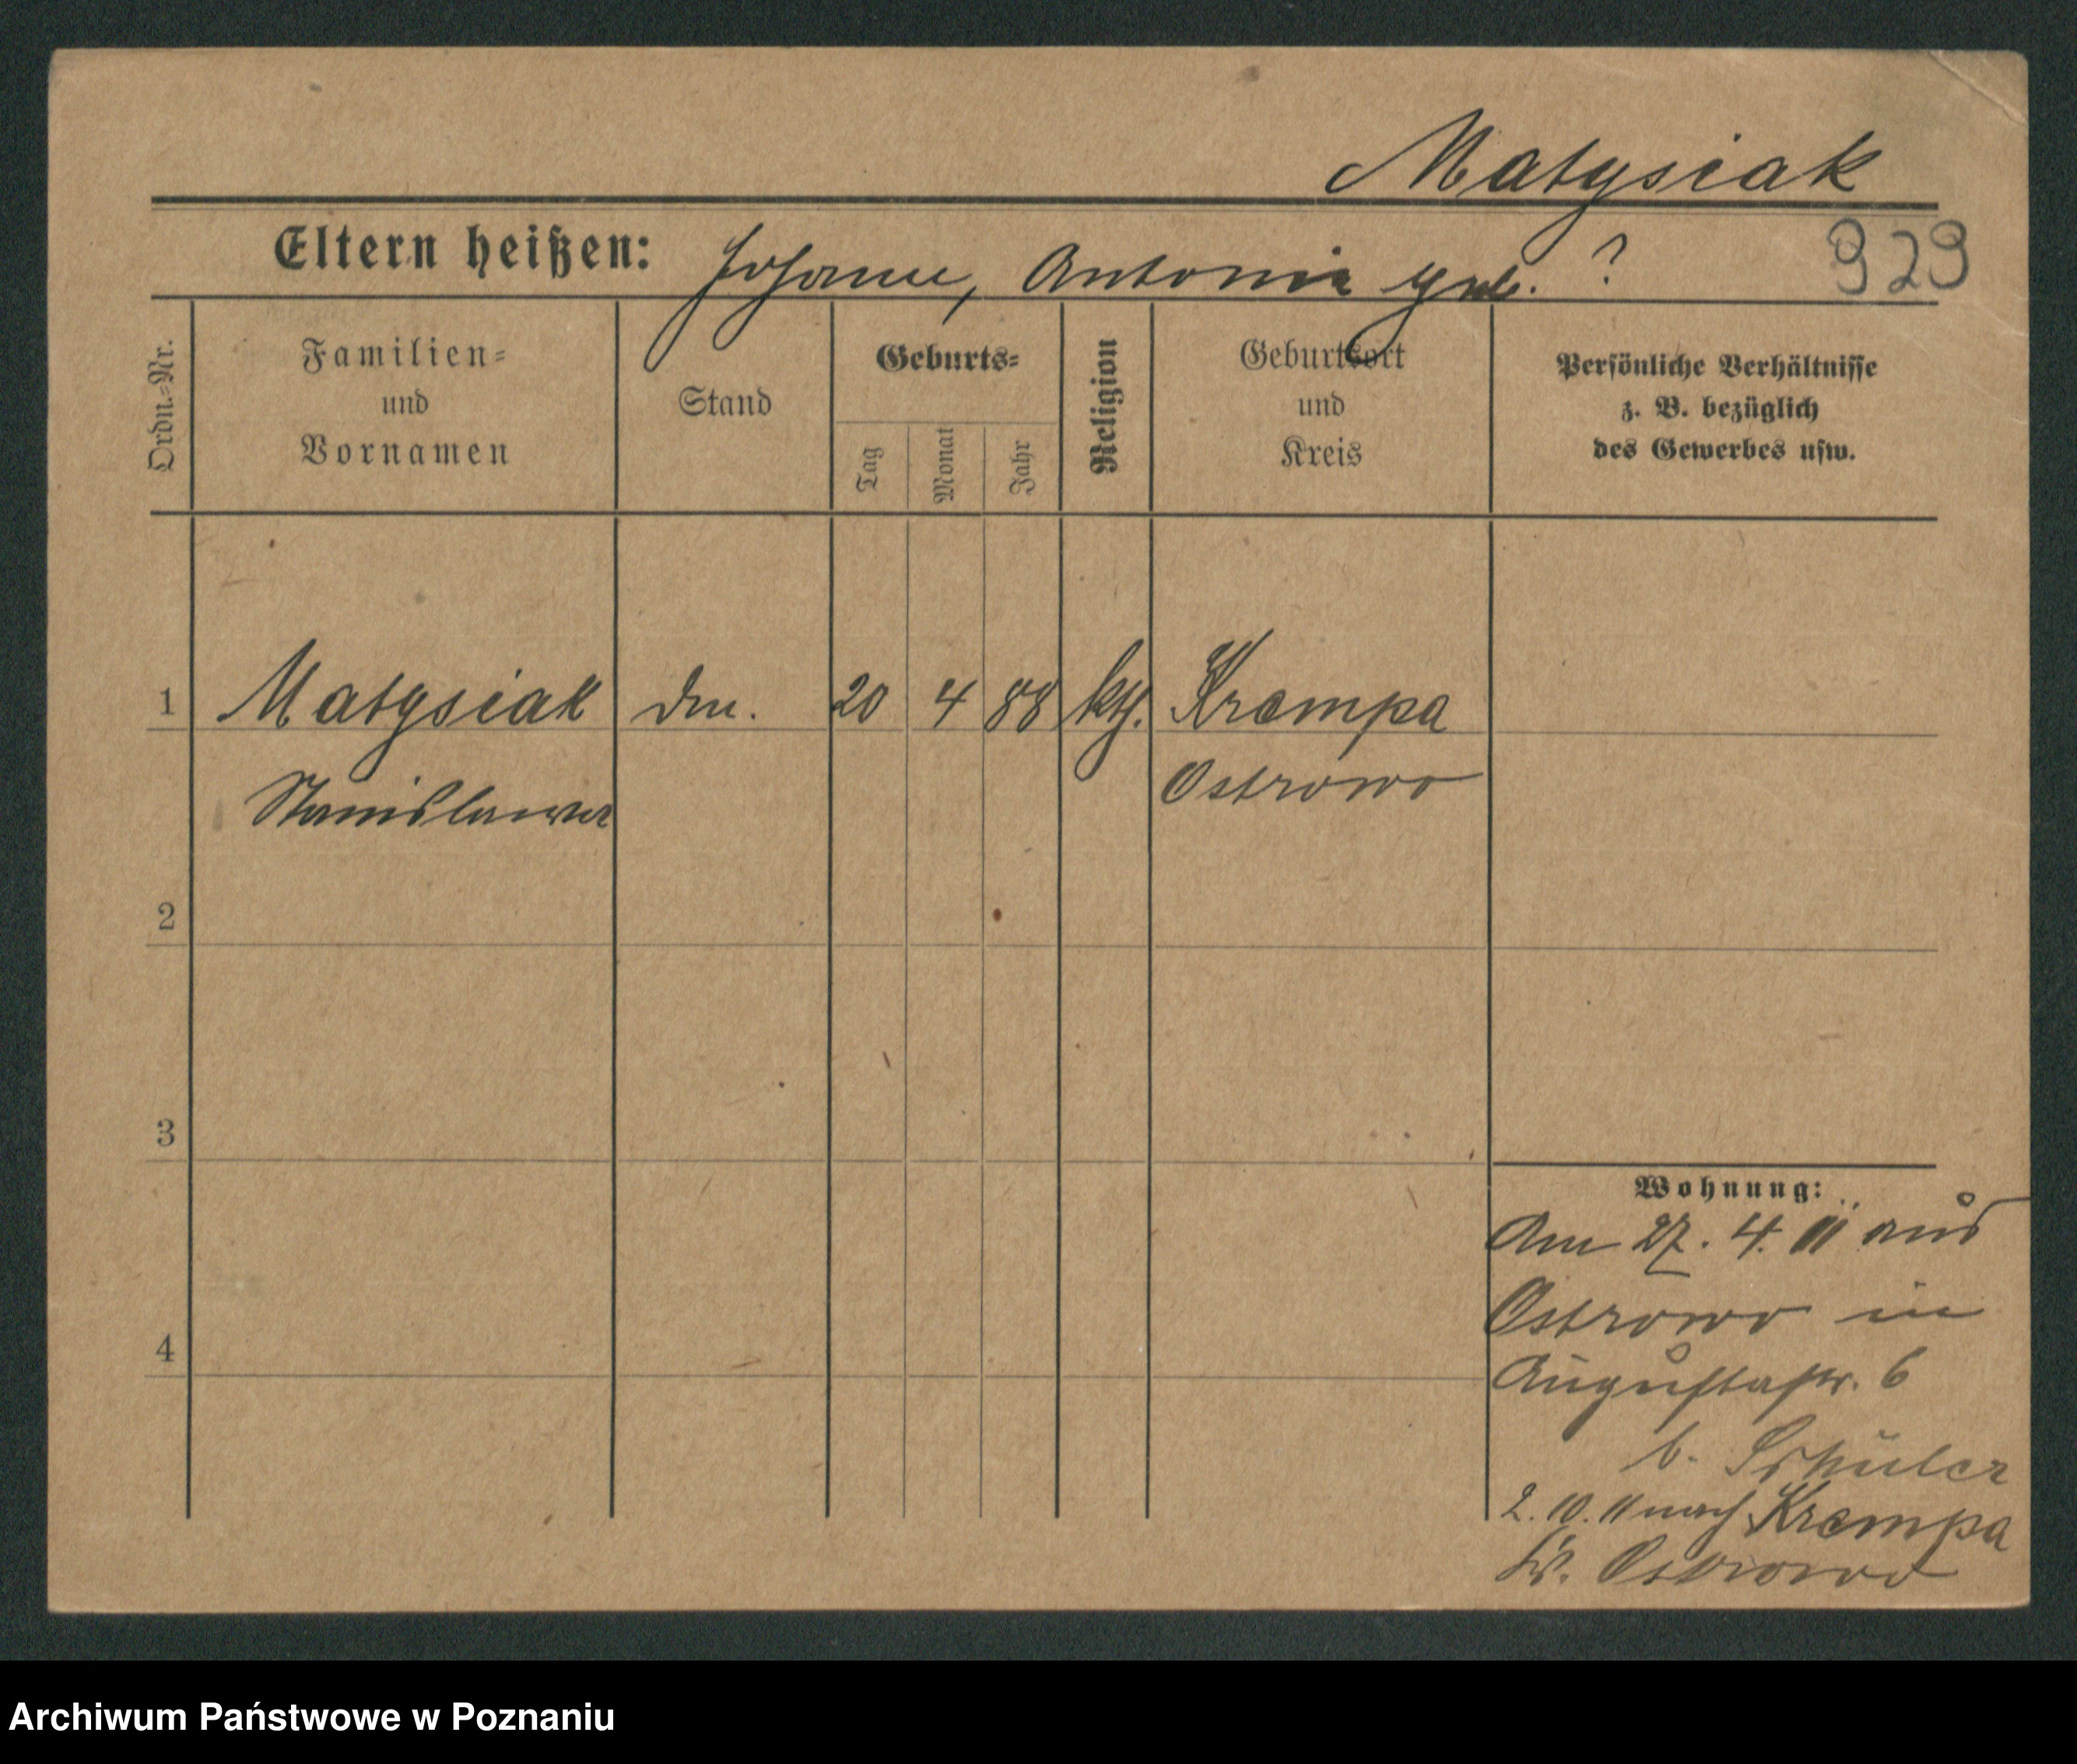 Matysiak
Eltern heißen: Johann, Antonie geb. ?
929
Ordn.-Nr.
Familien-
und
Vornamen
Stand
Geburts-
Tag
Monat
Jahr
Religion
Geburtsort
und
Kreis
Persönliche Verhältnisse
z. B. bezüglich
des Gewerbes usw.
1 Matysiak 20 4 88 kth. Krempa
Stanislawa Ostrowo
2
3
4
Wohnung:
Am 27. 4. 11 aus
Ostrowo in
Augustastr. 6
b. Schüler
2. 10. 11 nach Krempa
Kr. Ostrowo
Archiwum Państwowe w Poznaniu